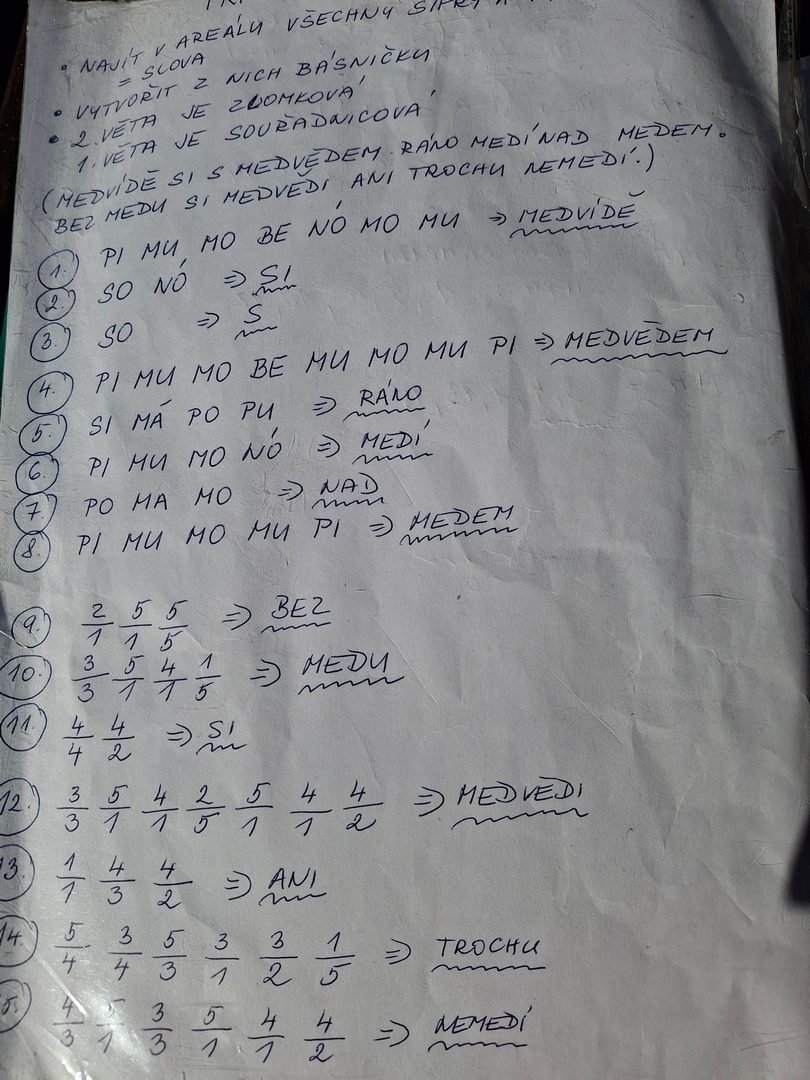 • NAJÍT V AREÁLU VŠECHNY ŠIFRY A
= SLOVA
• VYTVOŘIT Z NICH BÁSNIČKU
• 2. VĚTA JE ZLOMKOVÁ
1. VĚTA JE SOUŘADNICOVÁ
(MEDVÍDĚ SI S MEDVĚDEM RÁNO MEDÍ NAD MEDEM.
BEZ MEDU SI MEDVĚDÍ ANI TROCHU NEMEDÍ.)
1. PI MU MO BE NÓ MO MU ⇒ MEDVÍDĚ
2. SO NÓ ⇒ SI
3. SO ⇒ S
4. PI MU MO BE MU MO MU PI ⇒ MEDVĚDEM
5. SI MÁ PO PU ⇒ RÁNO
6. PI MU MO NÓ ⇒ MEDÍ
7. PO MA MO ⇒ NAD
8. PI MU MO MU PI ⇒ MEDEM
9. 2/1 5/1 5/5 ⇒ BEZ
10. 3/3 5/1 4/1 1/5 ⇒ MEDU
11. 4/4 4/2 ⇒ SI
12. 3/3 5/1 4/1 2/5 5/1 4/1 4/2 ⇒ MEDVEDI
13. 1/1 4/3 4/2 ⇒ ANI
14. 5/4 3/4 5/3 3/1 3/2 1/5 ⇒ TROCHU
5. 4/3 5/1 3/3 5/1 4/1 4/2 ⇒ NEMEDÍ